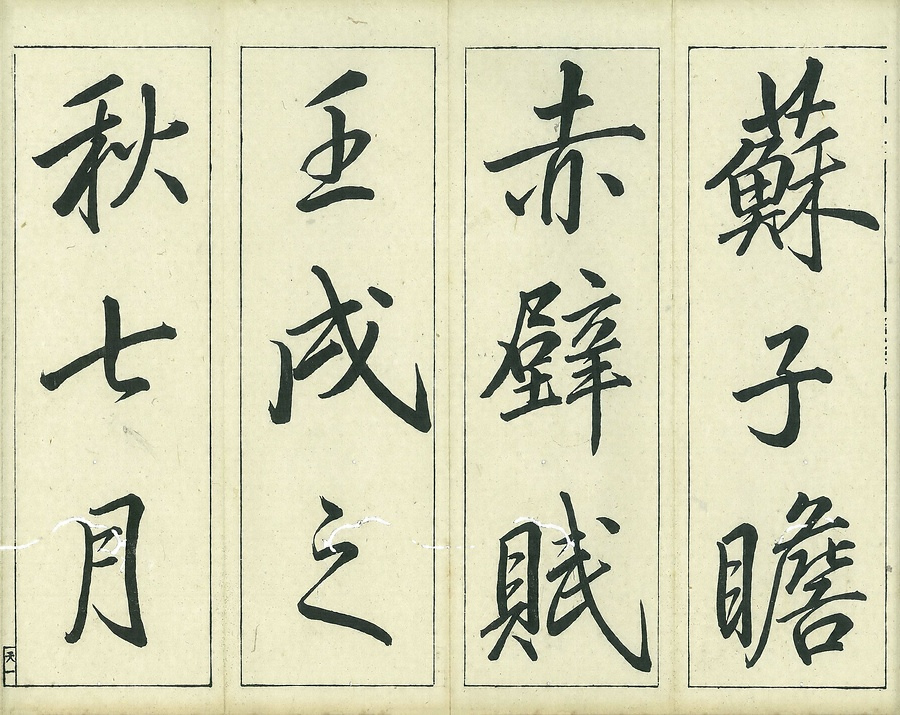 蘇子瞻
赤壁賦
壬戌之
秋七月
天一